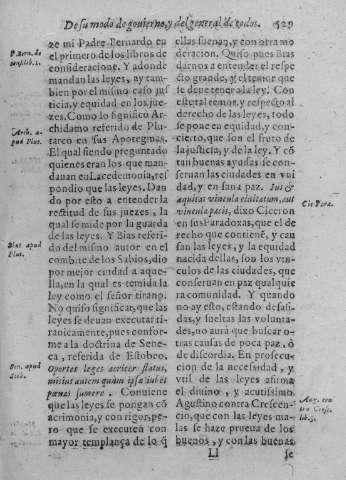 De su modo de gouierno, y del general de todos. 529
ze mi Padre Bernardo en
el primero de los libros de
consideracion. Y adonde
mandan las leyes, ay tam-
bien por el mismo caso jus
ticia, y equidad en los jue-
zes. Como lo significò Ar-
chidamo referido de Plu-
tarco en sus Apotegmas.
El qual siendo preguntado
quienes eran los que man-
dauan en Lacedemonia, res
pondio que las leyes. Dan
do por esto a entender la
rectitud de sus juezes, la
qual se mide por la guarda
de las leyes. Y Bias referi-
do del mismo autor en el
combite de los Sabios, dio
por mejor ciudad a aque-
lla, en la qual es temida la
ley como el señor tirano.
No quiso significar, que las
leyes se deuan executar ti-
ranicamente, pues confor-
me a la doctrina de Sene-
ca, referida de Estobeo,
Oportet leges acriter status,
mitius autem quàm ipsæ iubent
pœnas sumere. Conuiene
que las leyes se pongan cõ
acrimonia, y con rigor, pe-
ro que se executen con
mayor templança de lo q̃
P. Bern. de
Arch. a-
pud Plut.
Bias apud
Plut.
Sen. apud
Stob.
ellas suenan, y con otra mo
deracion. Quiso pues Bias
darnos a entender el respe-
cto grande, y el temor que
se deue tener a la ley. Con
este tal temor, y respecto al
derecho de las leyes, todo
se pone en equidad, y con-
cierto, que son el fruto de
la justicia, y de la ley. Y cõ
tan buenas ayudas se con-
seruan las ciudades en vni
dad, y en sana paz. Ius &
æquitas vincula ciuitatum, aut
vincula pacis, dixo Ciceron
en sus Paradoxas, que el de
recho que contienẽ, y cau
san las leyes, y la equidad
nacida dellas, son los vin-
culos de las ciudades, que
conseruan en paz qualquie
ra comunidad. Y quando
no ay esto, estando desasi-
das, y sueltas las volunta-
des, no aura que buscar o-
tras causas de poca paz, ò
de discordia. En prosecu-
cion de la necessidad, y
vtil de las leyes afirma
el diuino, y acutissimo
Agustino contra Crescen-
cio, que con las leyes ma-
las se haze prueua de los
buenos, y con las buenas
Cic Para.
Aug. con
tra Cresc.
Ll se